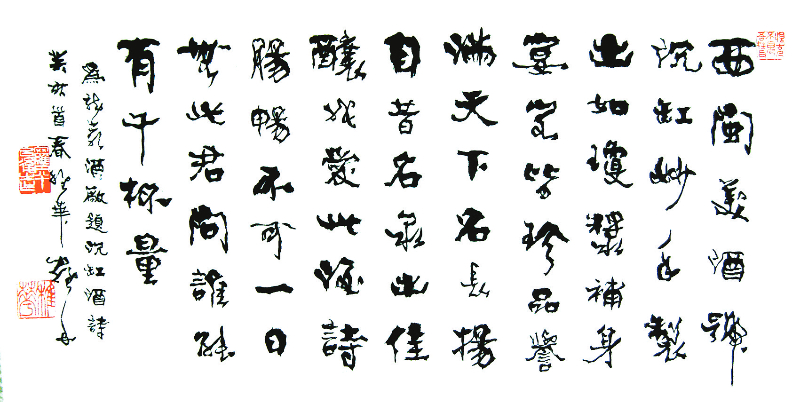 西閩美酒號
沉缸妙手製
出如瓊漿補身
宴客皆珍品譽
滿天下名長揚
自昔名泉出佳
釀我愛此詩
腸暢不可一日
無此君問誰能
有千杯量
為龍巖酒廠題沉缸酒詩
癸亥首春稚華羅丹
稚華